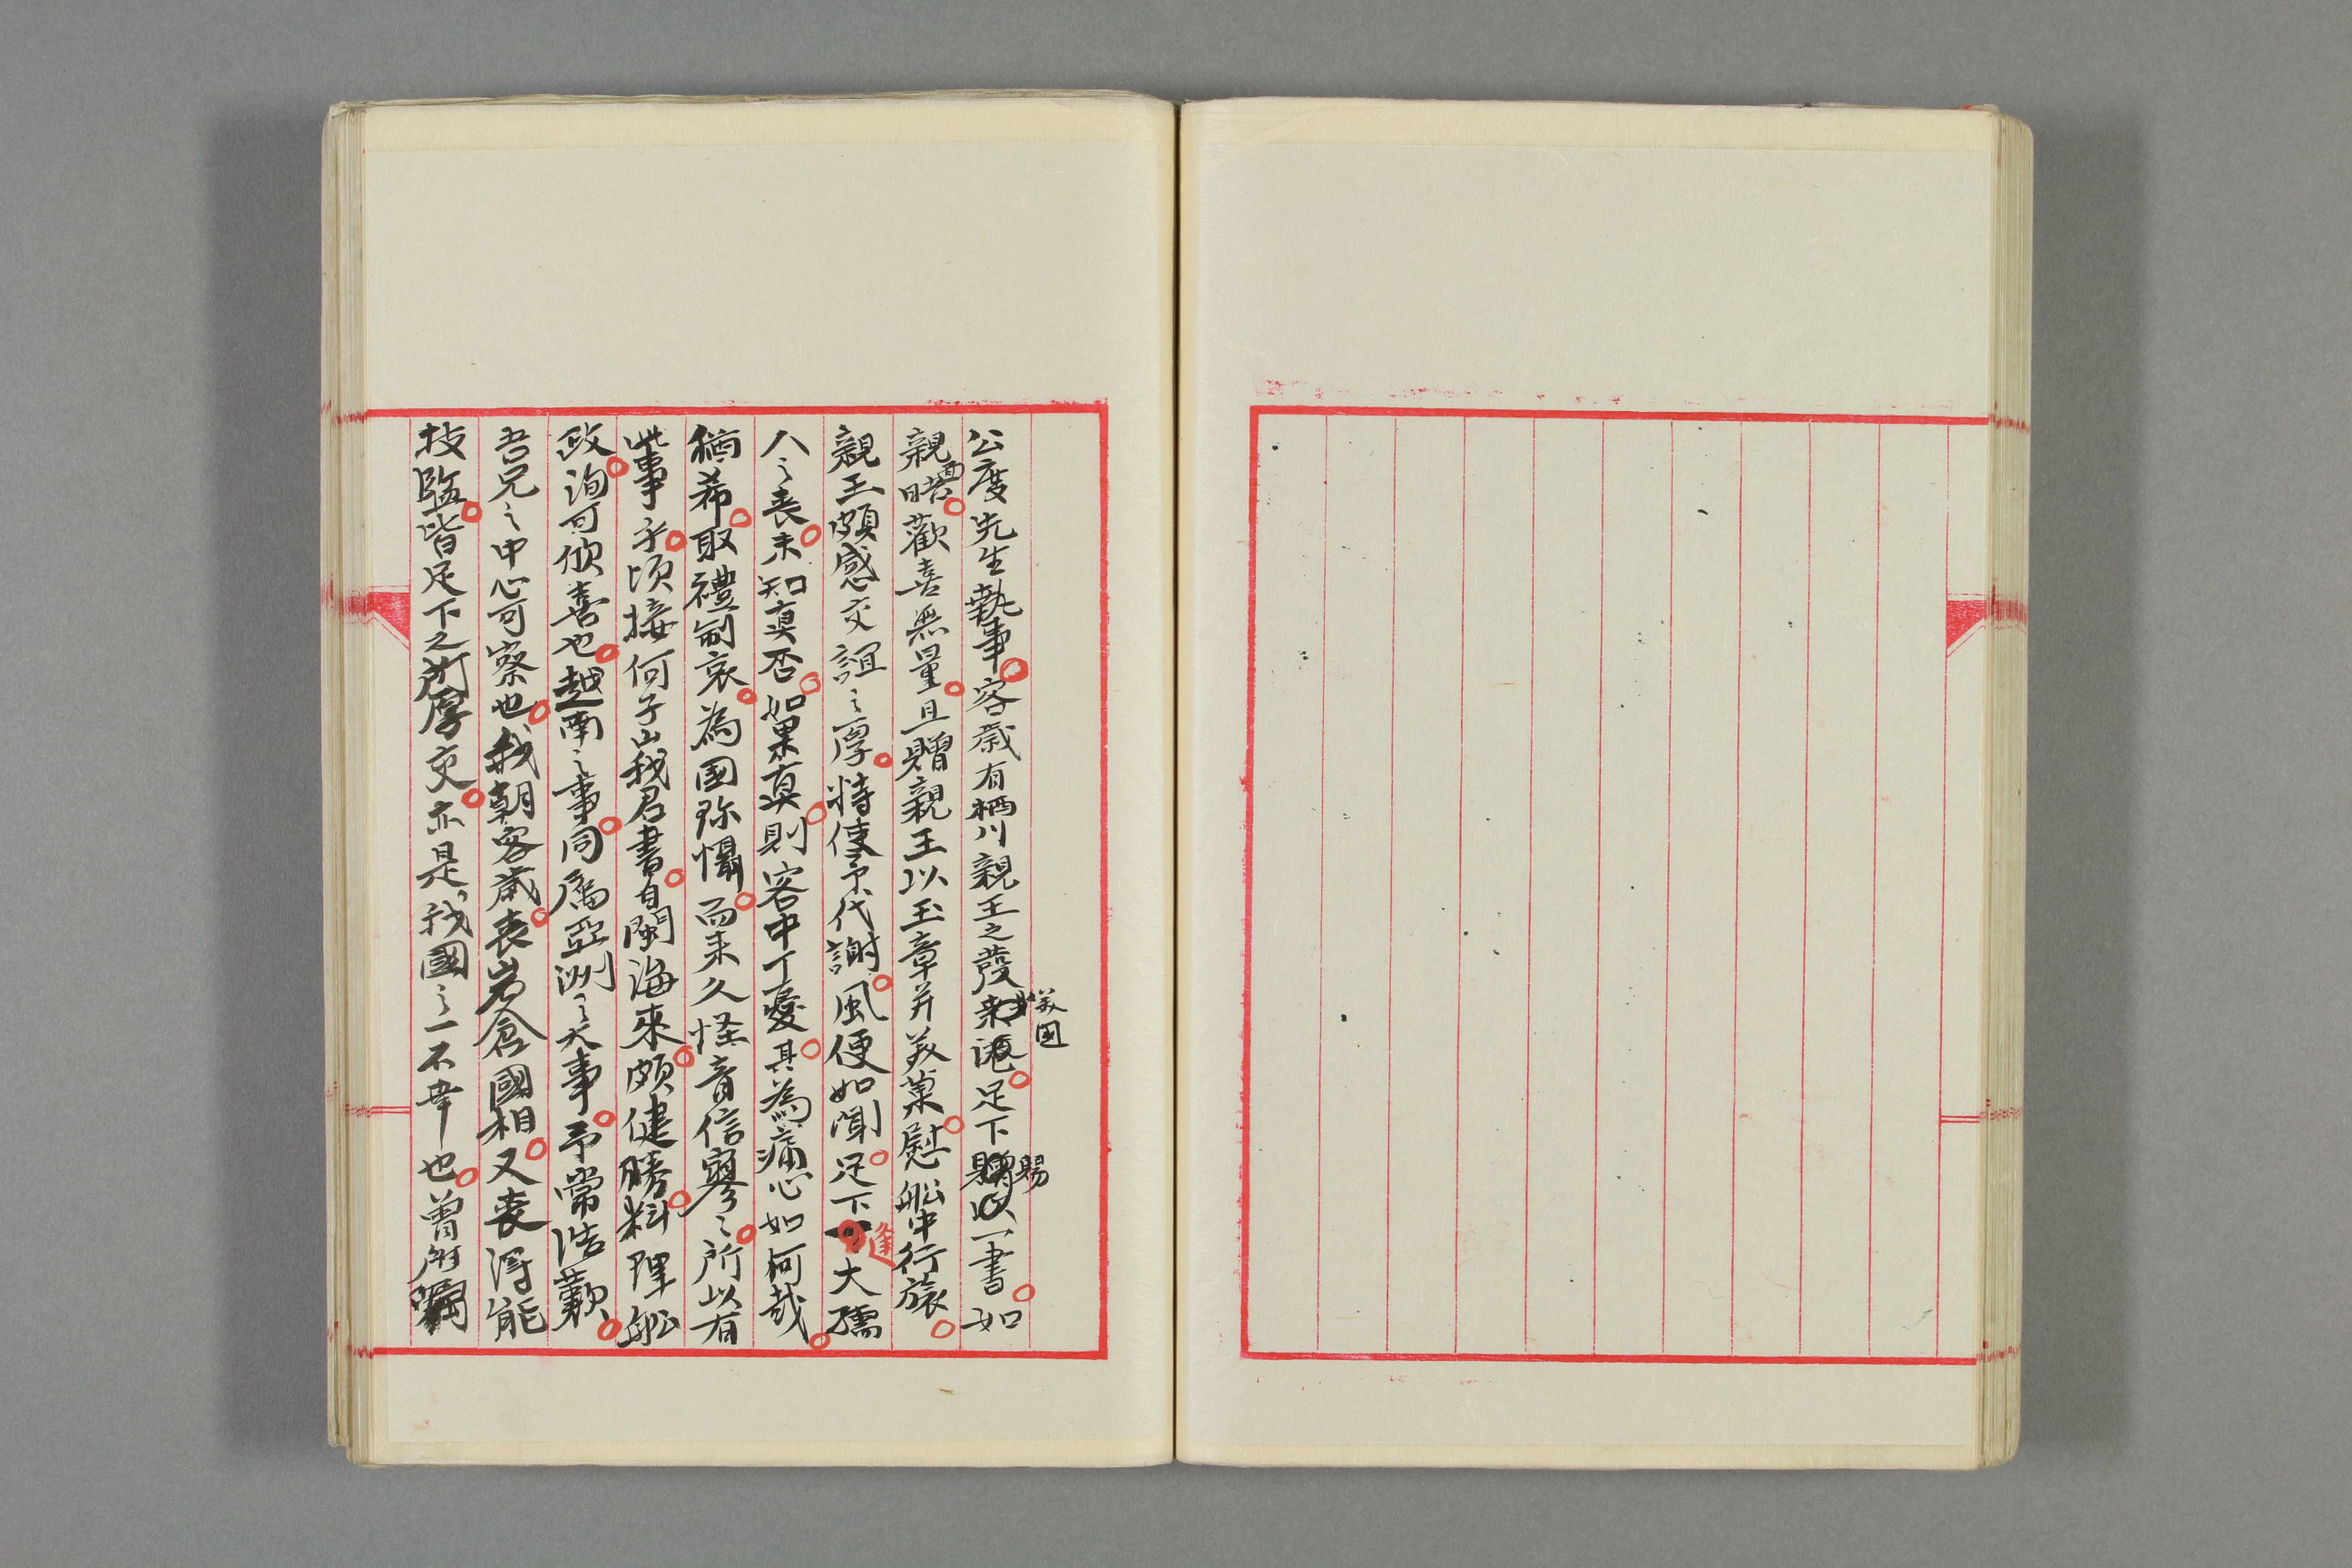 公度先生執事。客歲有栖川親王之發美國。足下賜一書。如
親面晤。歡喜無量。且贈親王以玉章并美菓。慰船中行旅。
親王頗感交誼之厚。特使予代謝。風便如聞。足下逢大孺
人之喪。未知真否。如果真。則客中丁憂。其為痛心如何哉。
猶希。取禮制哀。為國珎懾。而来久怪音信寥々。所以有
此事乎。頃接何子山我君書。自閩海來。頗健勝。料理船
政。洵可欣喜也。越南之事。同屬亞洲之大事。予常浩歎。
吾兄之中心可察也。我朝客歲。喪岩倉國相。又喪得能
技監。皆足下之所厚交。亦是我國之一不幸也。曾所囑